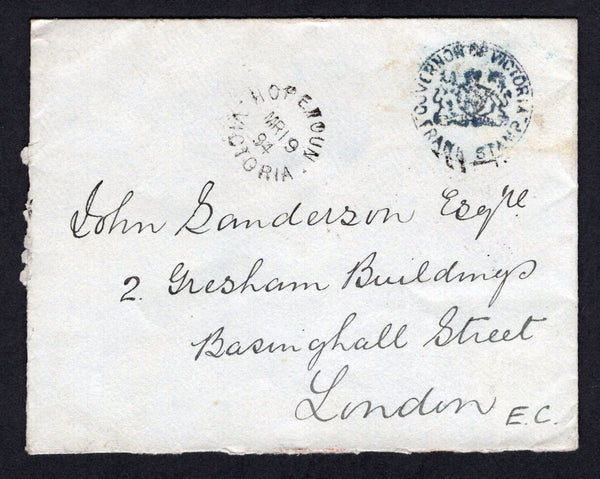 GOVERNOR OF VICTORIA
FRANK STAMP
MR 19
94
VICTORIA
John Sanderson Esqre
2. Gresham Buildings
Basinghall Street
London E.C.